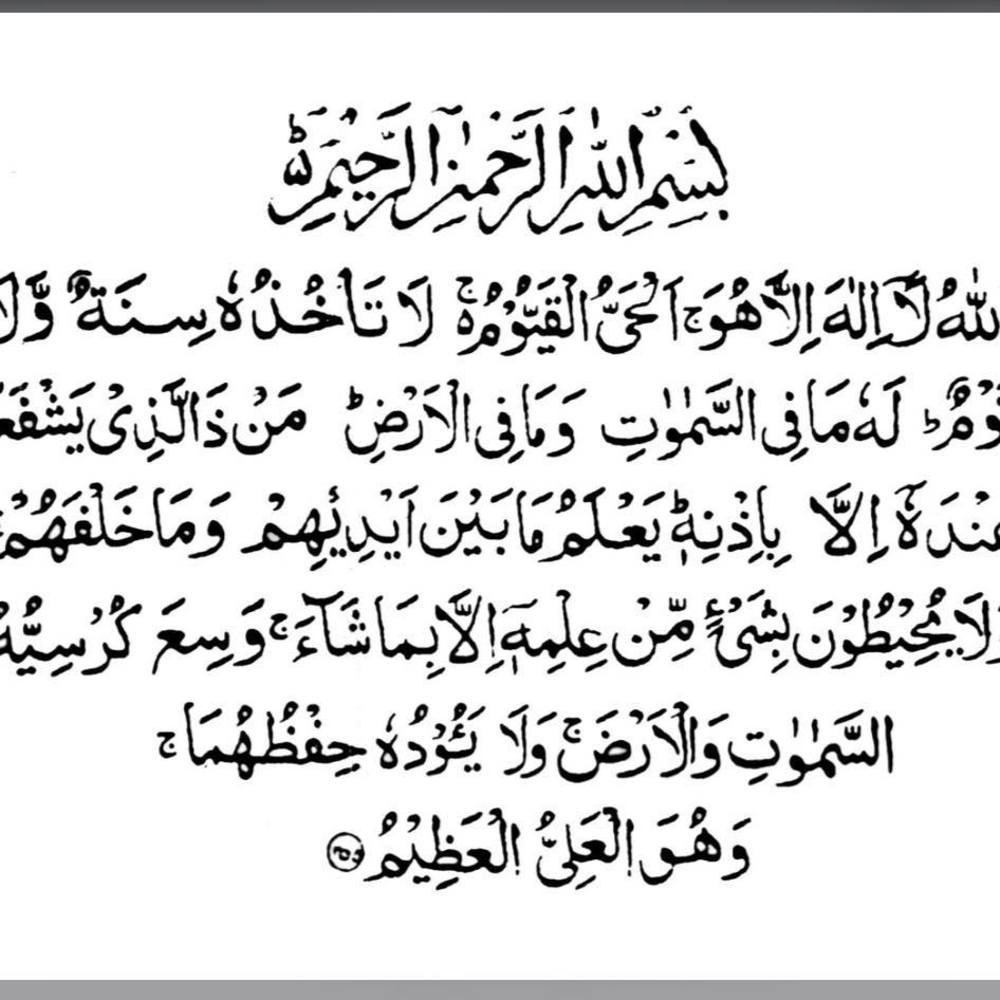 بِسْمِ اللهِ الرَّحْمٰنِ الرَّحِيْمِ ؕ
اللهُ لَاۤ اِلٰهَ اِلَّا هُوَ ۚ اَلْحَیُّ الْقَیُّوْمُ ۚ۬ لَا تَاْخُذُهٗ سِنَةٌ وَّلَا
نَوْمٌ ؕ لَهٗ مَا فِی السَّمٰوٰتِ وَمَا فِی الْاَرْضِ ؕ مَنْ ذَا الَّذِیْ یَشْفَعُ
عِنْدَهٗۤ اِلَّا بِاِذْنِهٖ ؕ یَعْلَمُ مَا بَیْنَ اَیْدِیْهِمْ وَمَا خَلْفَهُمْ ۚ
وَلَا یُحِیْطُوْنَ بِشَیْءٍ مِّنْ عِلْمِهٖۤ اِلَّا بِمَا شَآءَ ۚ وَسِعَ كُرْسِیُّهُ
السَّمٰوٰتِ وَالْاَرْضَ ۚ وَلَا یَـُٔوْدُهٗ حِفْظُهُمَا ۚ
وَهُوَ الْعَلِیُّ الْعَظِیْمُ ۝۲۵۵